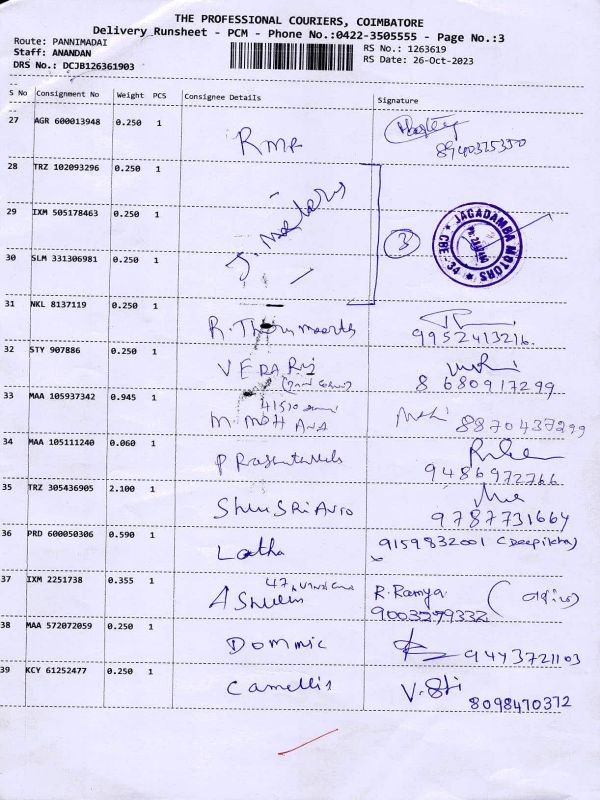 THE PROFESSIONAL COURIERS, COIMBATORE
Delivery Runsheet - PCM - Phone No.:0422-3505555 - Page No.:3
Route: PANNIMADAI
RS No.: 1263619
Staff: ANANDAN
RS Date: 26-Oct-2023
DRS No.: DCJB126361903
S No Consignment No Weight PCS Consignee Details Signature
27 AGR 600013948 0.250 1 RMR
8940325350
28 TRZ 102093296 0.250 1
29 IXM 505178463 0.250 1
3
JAGADAMBA MOTORS
CBE - 34
30 SLM 331306981 0.250 1
31 NKL 8137119 0.250 1
9952413216.
32 STY 907886 0.250 1
8680917299
33 MAA 105937342 0.945 1
41510
8870437299
34 MAA 105111240 0.060 1
9486972766
35 TRZ 305436905 2.100 1
9787731664
36 PRD 600050306 0.590 1 Latha 9159832001 (Deepikha)
37 IXM 2251738 0.355 1 R. Ramya
9003279332
38 MAA 572072059 0.250 1 Dommic 9443721103
39 KCY 61252477 0.250 1 Camellis
8098470372